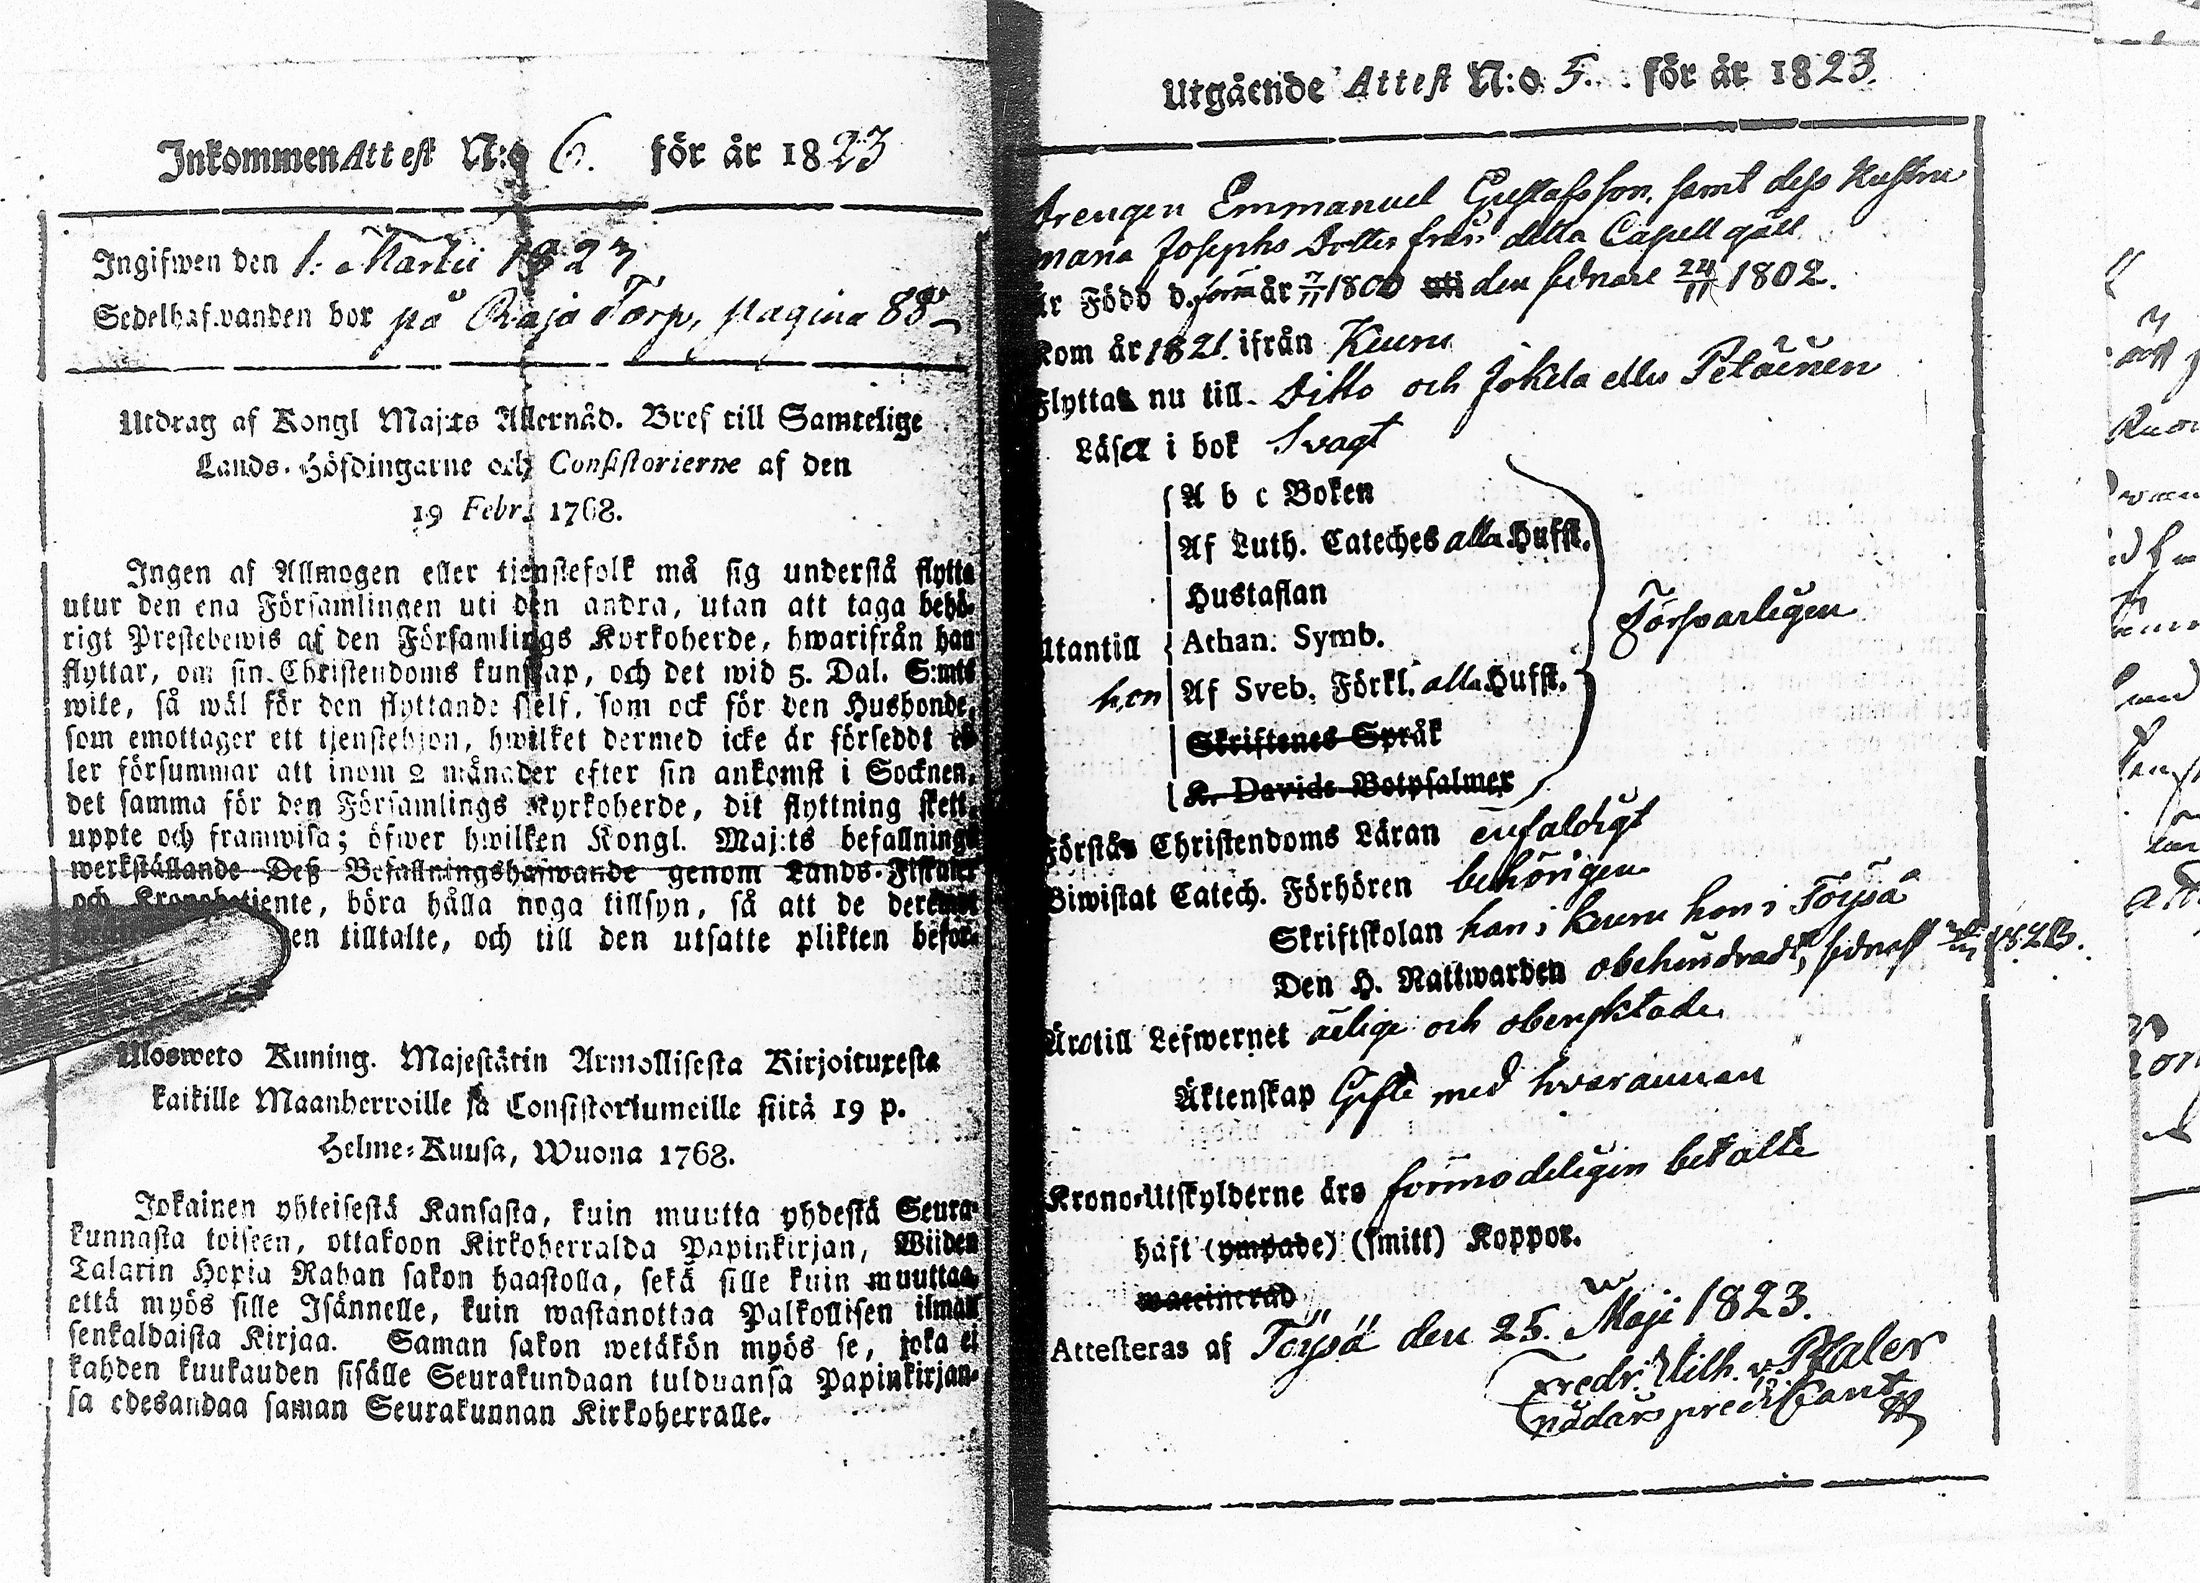 Inkommen Attest N:o 6. för år 1823
Ingifwen den 1. Martii 1823
Sedelhafwanden bor på Raja Torp, pagina 88
Utdrag af Kongl Maj:ts Allernåd. Bref till Samtelige
Lands-Höfdingarne och Consistorierne af den
19 Febr. 1768.
Ingen af Allmogen eller tienstefolk må sig understå flytta
utur den ena Församlingen uti den andra, utan att taga behö-
rigt Prestebewis af den Församlings Kyrkoherde, hwarifrån han
flyttar, om sin Christendoms kunskap, och det wid 5. Dal. S:mts
wite, så wäl för den flyttande sjelf, som ock för den Husbonde,
som emottager ett tjenstehjon, hwilket dermed icke är förseddt el-
ler försummar att inom 2 månader efter sin ankomst i Socknen,
det samma för den Församlings Kyrkoherde, dit flyttning skett,
uppte och framwisa; öfwer hwilken Kongl. Maj:ts befallnings
werkställande Deß Befallningshafwande genom Lands-Fiskaler
och Kronobetjente, böra hålla noga tillsyn, så att de deremot
en tilltalte, och till den utsatte plikten befor-
Ulosweto Kuning. Majestätin Armollisesta Kirjoituxesta
kaikille Maanherroille ja Consistoriumeille siitä 19 p.
Helme-Kuusa, Wuona 1768.
Jokainen yhteisestä Kansasta, kuin muutta yhdestä Seura-
kunnasta toiseen, ottakoon Kirkoherralda Papinkirjan, Wiiden
Talarin Hopia Rahan sakon haastolla, sekä sille kuin muuttaa,
että myös sille Isännelle, kuin wastanottaa Palkollisen ilman
senkaldaista Kirjaa. Saman sakon wetäkön myös se, joka ei
kahden kuukauden sisälle Seurakundaan tulduansa Papinkirjan-
sa edesandaa saman Seurakunnan Kirkoherralle.
Utgående Attest N:o 5. för år 1823.
Drengen Emmanuel Gustafsson, samt dess Hustru
Maria Josephs Dotter från detta Capell gäll
är Född d. förra år 7/11 1800 uti den sednare 24/11 1802.
Kom år 1821. ifrån Kuru
Flyttar nu till Ditto och Jokela eller Petäinen
Läser i bok Svagt
A b c Boken
Af Luth. Cateches alla Hufst.
Hustaflan
Utantill
Athan. Symb.
hon
Af Sveb. Förkl. alla Hufst.
Skriftenes Språk
K. Davids Botpsalmer
Försvarligen
Förstår Christendoms Läran enfaldigt
Biwistat Catech. Förhören behörigen
Skriftskolan han i Kuru hon i Töysä
Den H. Nattwarden obehindradt, sednast 1823.
Äro till Lefwernet ärlige och oberyktade
Äktenskap Gifte med hvarannan
Krono-Utskylderne äro förmodeligen betalte
haft (ympade) (smitt) Koppor.
waccinerad
Attesteras af Töysä den 25. Maji 1823.
Fredr. Wilh. v. Pfaler
Nådårspredikant